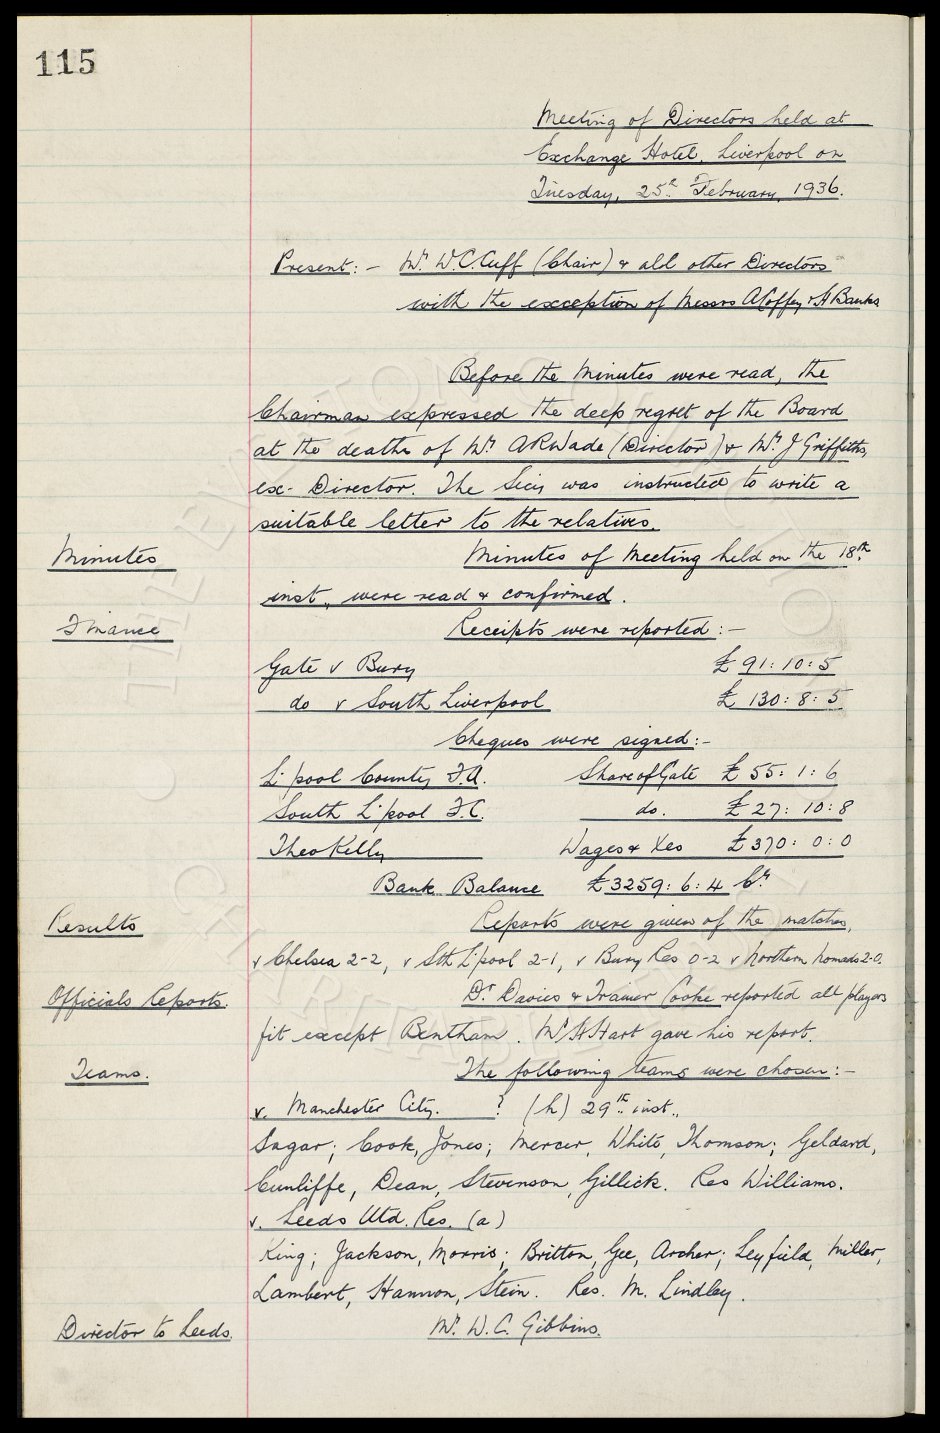 115
Meeting of Directors held at
Exchange Hotel, Liverpool on
Tuesday, 25th February, 1936.
Present:- Mr W.C. Cuff (Chair) & all other Directors
with the exception of Messrs A Coffey & H Banks
Before the Minutes were read, the
Chairman expressed the deep regret of the Board
at the deaths of Mr A R Wade (Director) & Mr J Griffiths,
ex-Director. The Secy was instructed to write a
suitable letter to the relatives.
Minutes Minutes of Meeting held on the 18th
inst., were read & confirmed.
Finance Receipts were reported:-
Gate v Bury £ 91: 10: 5
do v South Liverpool £ 130: 8: 5
Cheques were signed:-
L'pool County F.A. Share of Gate £ 55: 1: 6
South L'pool F.C. do. £ 27: 10: 8
Theo Kelly Wages & Xes £ 370: 0: 0
Bank Balance £3259: 6: 4 Cr.
Results Reports were given of the matches,
v Chelsea 2-2, v Sth L'pool 2-1, v Bury Res 0-2 v Northern Nomads 2-0.
Officials Reports. Dr. Davies & Trainer Cooke reported all players
fit except Bentham. Mr H Hart gave his report.
Teams. The following teams were chosen:-
v. Manchester City. ? (h) 29th inst.,
Sagar; Cook, Jones; Mercer, White, Thomson; Geldard,
Cunliffe, Dean, Stevenson, Gillick. Res Williams.
v. Leeds Utd. Res. (a)
King; Jackson, Morris; Britton, Gee, Archer; Leyfield, Miller,
Lambert, Hannon, Stein. Res. M. Lindley.
Director to Leeds. Mr. W.C. Gibbins.
THE EVERTON COLLECTION
CHARITABLE TRUST